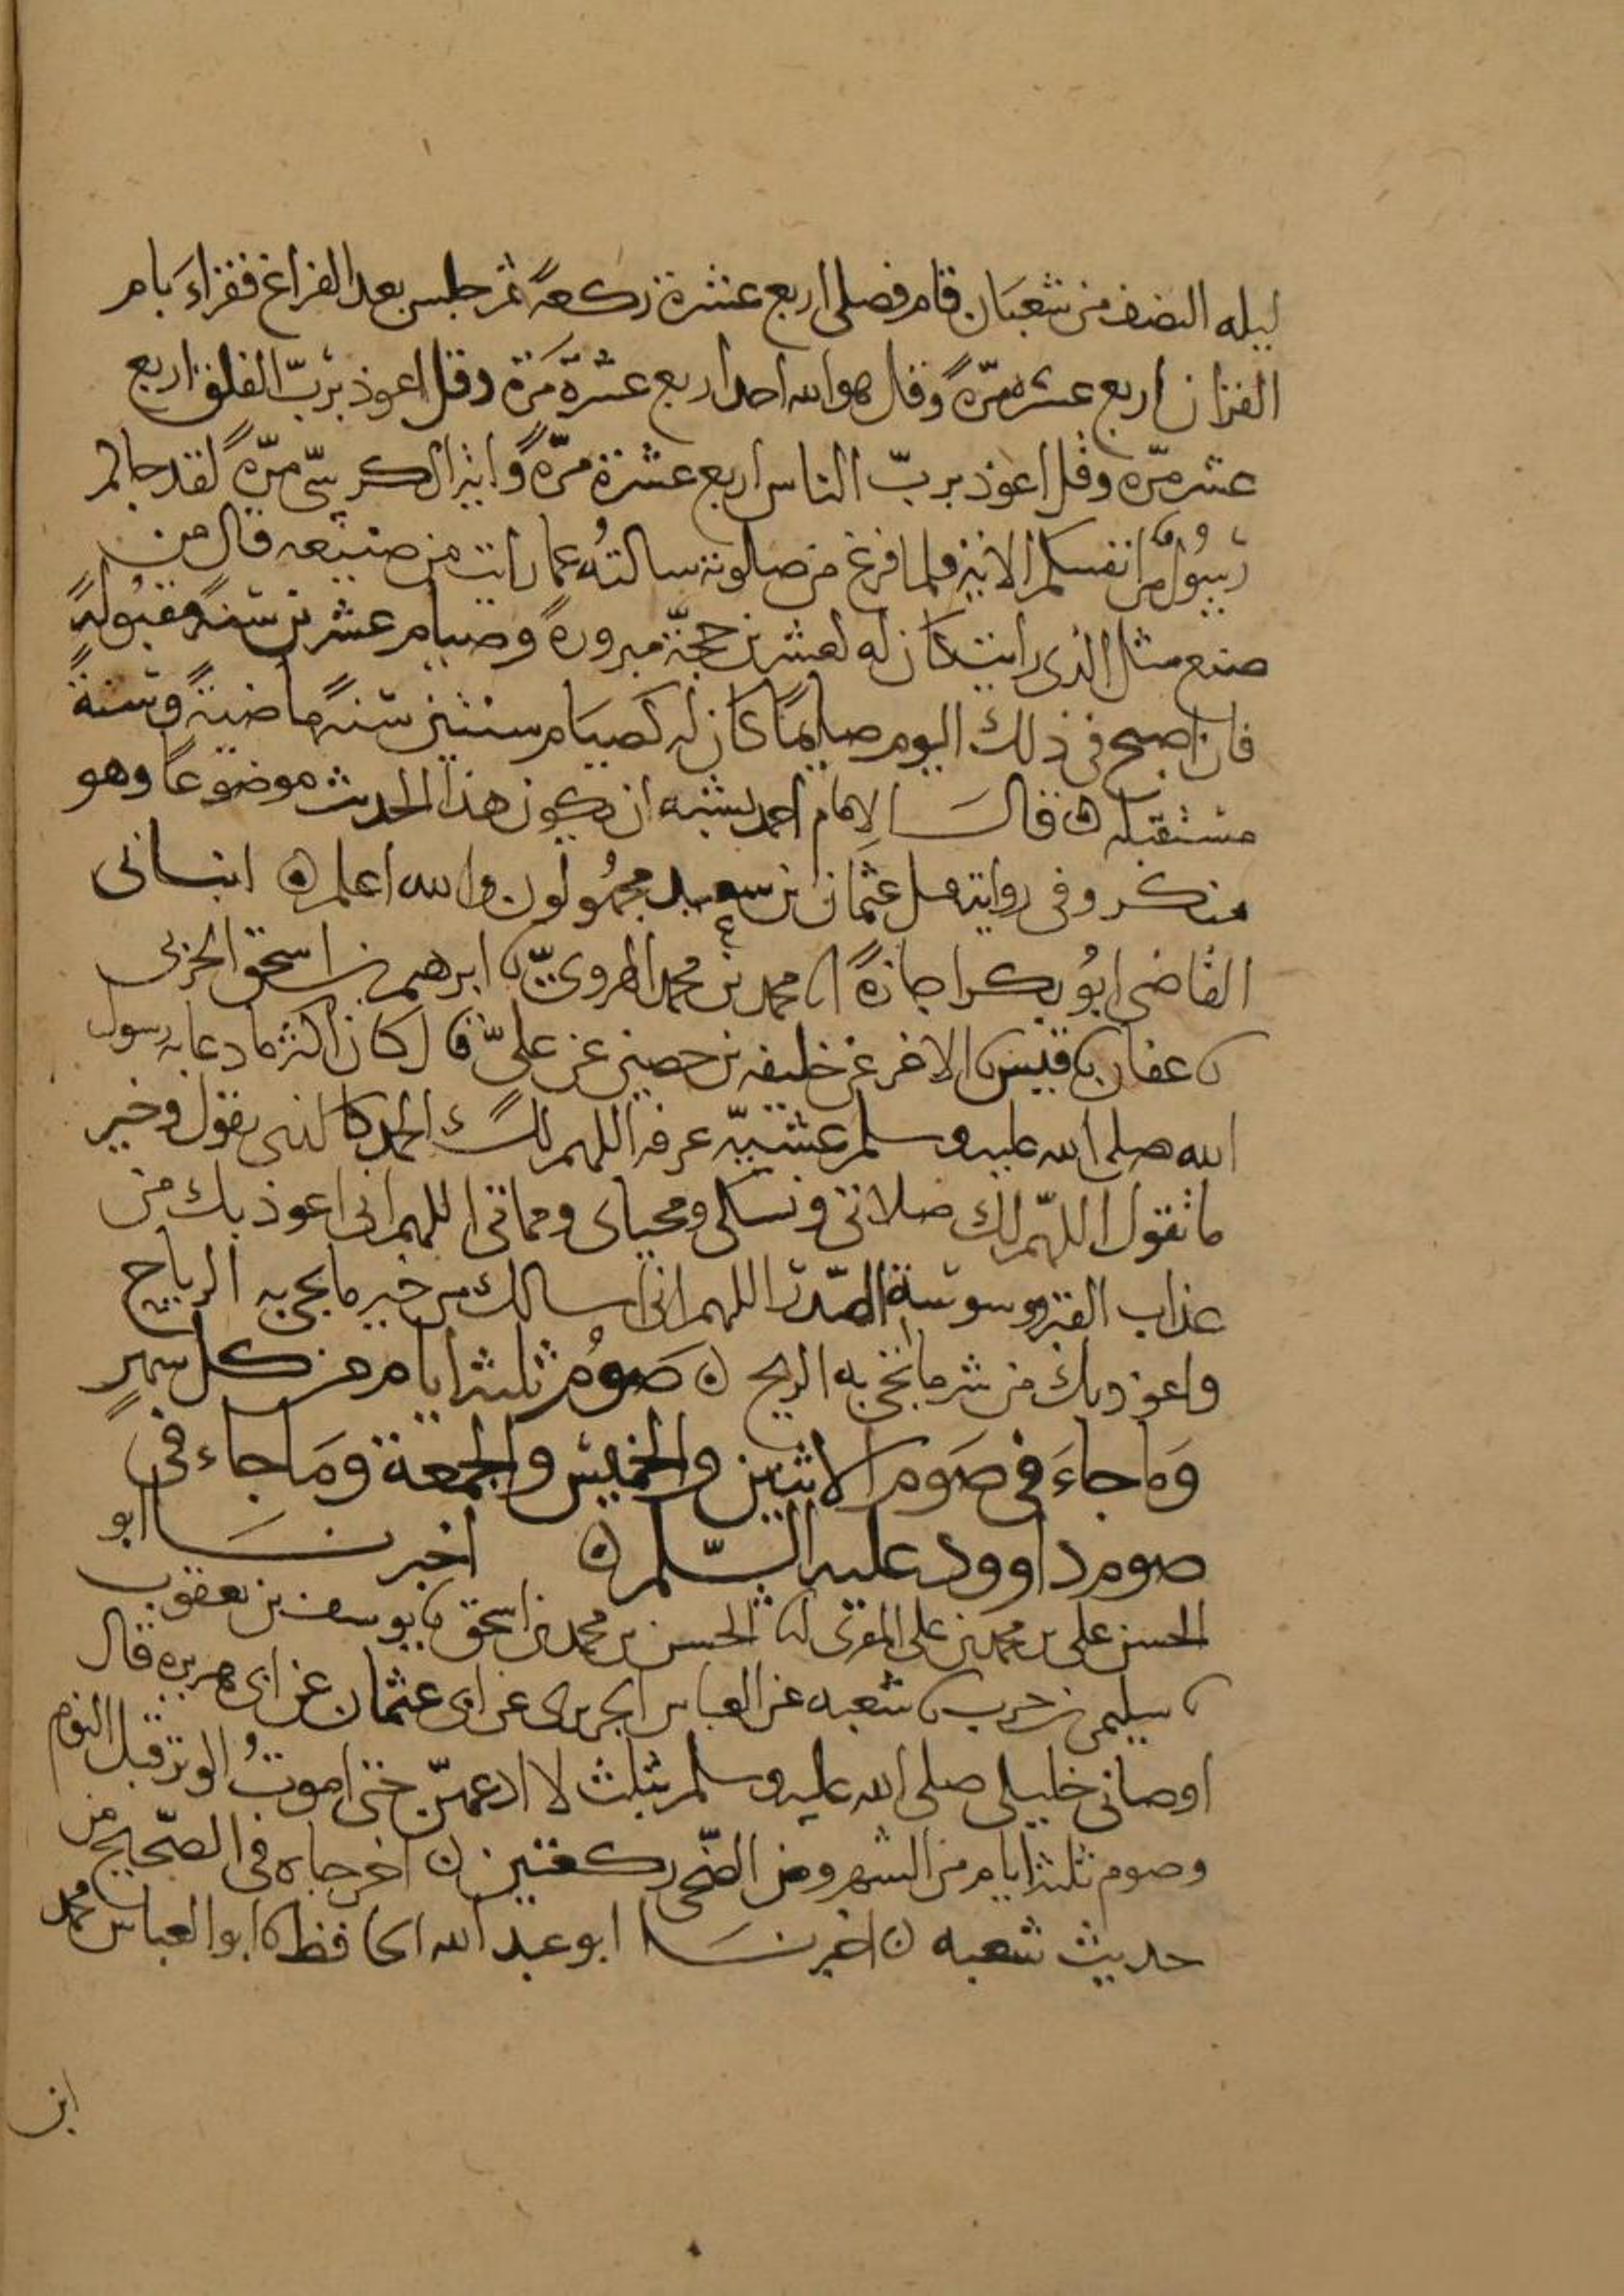 ليله النصف من شعبان قام فصلى اربع عشرة ركعةً ثم جلس بعد الفراغ فقراءَ بام
القران اربع عشره مرّةً وقل هو الله احد اربع عشرة مَرة وقل اعوذ برَبّ الفلق اربع
عشر مرّه وقل اعوذ بربّ الناس اربع عشرة مرّةً وايةَ الكرسيّ مرّةً لقد جاكم
رَسُولٌ من انفسكم الاية فلما فرغ من صلوته سالتُه عما رايت من صنيعه قال من
صنع مثل الذى رايت كان له كعشرين حجّة مبرورةً وصيام عشرين سنةً مقبُولةً
فان اصبح فى ذلك اليوم صايمًا كان له كصيام سنتين سَنةً ماضيةً وسَنةً
مستقبله ه قال الامام احمد يشبه ان يكون هذا الحديث موضوعًا وهو
منكر وفى روايته قبل عثمان بن سعيد مجهُولون والله اعلم ه انبانى
القاضى ابُو بكر اجازةً انا محمد بن محمد الهروىّ نا ابرهيم بن اسحق الحربى
نا عفان نا قيس نا الاغر عن خليفه بن حصين عن علىّ قال كان اكثر ما دعا به رسول
الله صلى الله عليه وسلم عشيّه عرفه اللهم لك الحمد كالذى نقول وخير
ما نقول اللهّم لك صلاتى ونسكى ومحياى ومماتى اللهم انى اعوذ بك من
عذاب القبر ووسوسة الصّدر اللهم انى اسالك من خير ما تجى به الرياح
واعوذ بك من شر ما تجى به الريح ه صَومُ ثلثه ايام من كل شهرٍ
وَما جاءَ فى صَوم الاثنين والخميس والجمعة ومَا جاء فى
صوم داوود عليه السّلم ه اخبرنا ابو
الحسن على بن محمد بن على المقرى انا الحسن بن محمد بن اسحق نا يوسف بن يعقوب
نا سليمن بن حرب نا شعبه عن العباس الجريرى عن ابى عثمان عن ابى هريره قال
اوصانى خليلى صلى الله عليه وسلم بثلث لا ادعهنّ حتى اموتُ الوتر قبل النوم
وصوم ثلثه ايام من الشهر ومن الضّحى ركعتين ه اخرجاه فى الصّحيح من
حديث شعبه ه اخبرنا ابو عبد الله الحافظ نا ابو العباس محمد
ابن